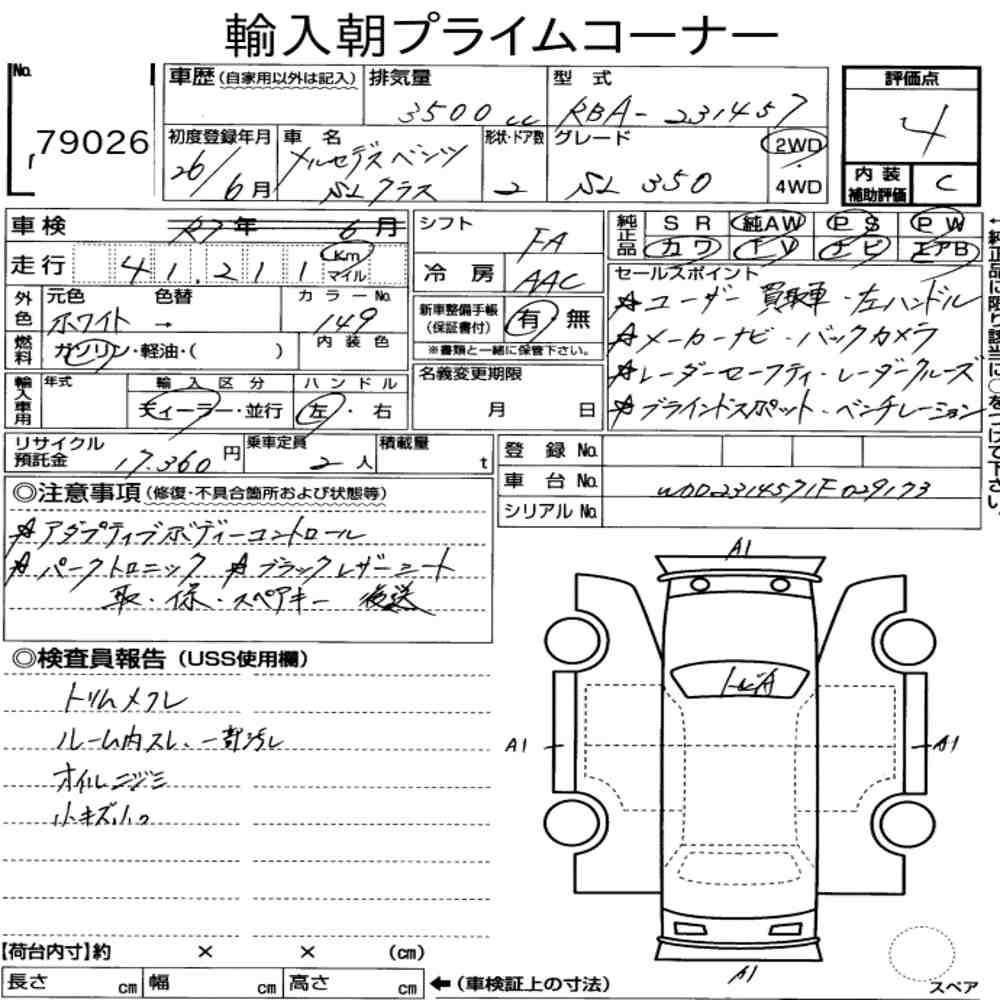 輸入朝プライムコーナー
No. 79026
車歴(自家用以外は記入)
排気量 3500cc
型式 RBA-231457
評価点 4
内装補助評価 C
初度登録年月 26/6月
車名 メルセデスベンツ
SLクラス
形状・ドア数 2
グレード SL 350
2WD
・
4WD
車検 R7年 6月
走行 41,211 Km マイル
シフト FA
冷房 AAC
純正品 SR 純AW PS PW
カワ TV ナビ エアB
外色 元色 色替 カラーNo.
ホワイト → 149
内装色
燃料 ガソリン・軽油・( )
新車整備手帳(保証書付) 有 無
※書類と一緒に保管下さい。
名義変更期限
月 日
セールスポイント
☆ユーザー買取車・左ハンドル
☆メーカーナビ・バックカメラ
☆レーダーセーフティ・レーダークルーズ
☆ブラインドスポット・ベンチレーション
←純正品に限り該当に○をつけて下さい。
輸入車用 年式 輸入区分 ハンドル
ディーラー・並行 左・右
リサイクル預託金 17,360円
乗車定員 2人
積載量 t
登録No.
車台No. WDD2314571F029173
シリアルNo.
◎注意事項(修復・不具合箇所および状態等)
☆アダプティブボディーコントロール
☆パークトロニック ☆ブラックレザーシート
取・保・スペアキー 後送
◎検査員報告(USS使用欄)
トリムメクレ
ルーム内スレ、一部汚レ
オイルニジミ
小キズ小凹
A1
トビA
A1
A1
A1
スペア
【荷台内寸】約 × × (cm)
長さ cm 幅 cm 高さ cm ←(車検証上の寸法)